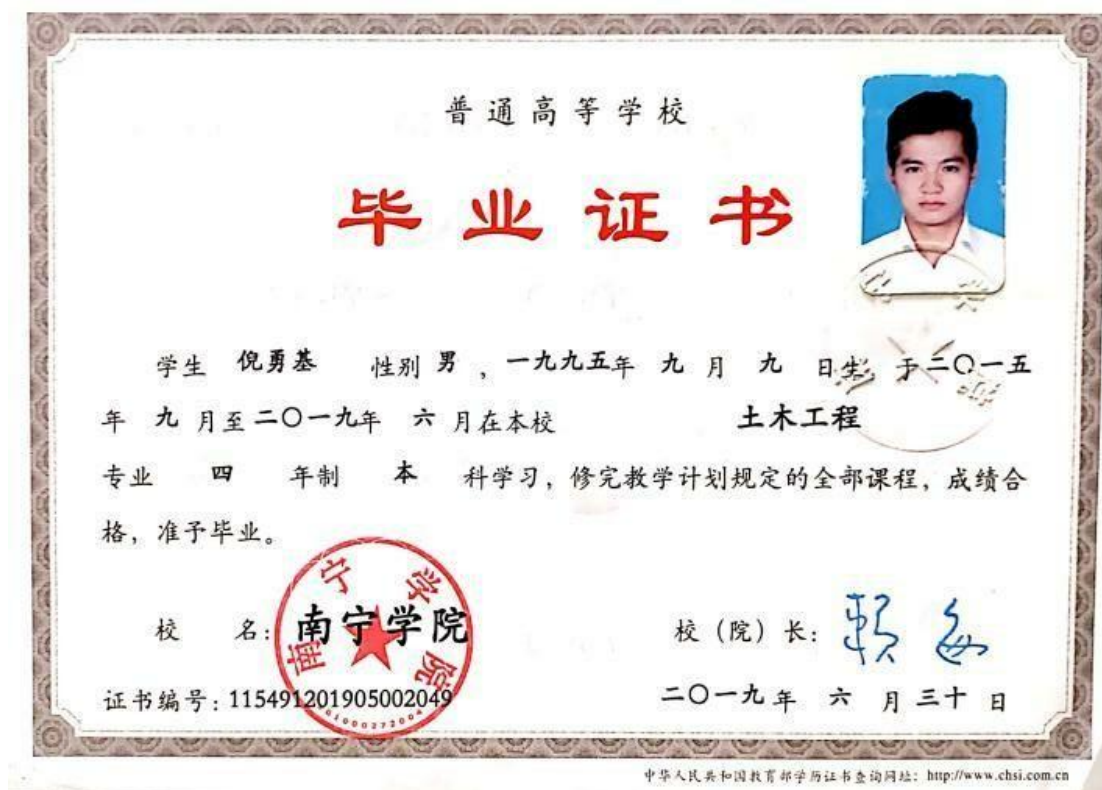 普通高等学校
毕业证书
学生 倪勇基 性别 男 ，一九九五年 九 月 九 日生，于二〇一五
年 九 月至二〇一九年 六 月在本校 土木工程
专业 四 年制 本 科学习，修完教学计划规定的全部课程，成绩合
格，准予毕业。
校 名：南宁学院 校（院）长：
南宁学院
证书编号：115491201905002049 二〇一九年 六 月 三十 日
中华人民共和国教育部学历证书查询网址：http://www.chsi.com.cn